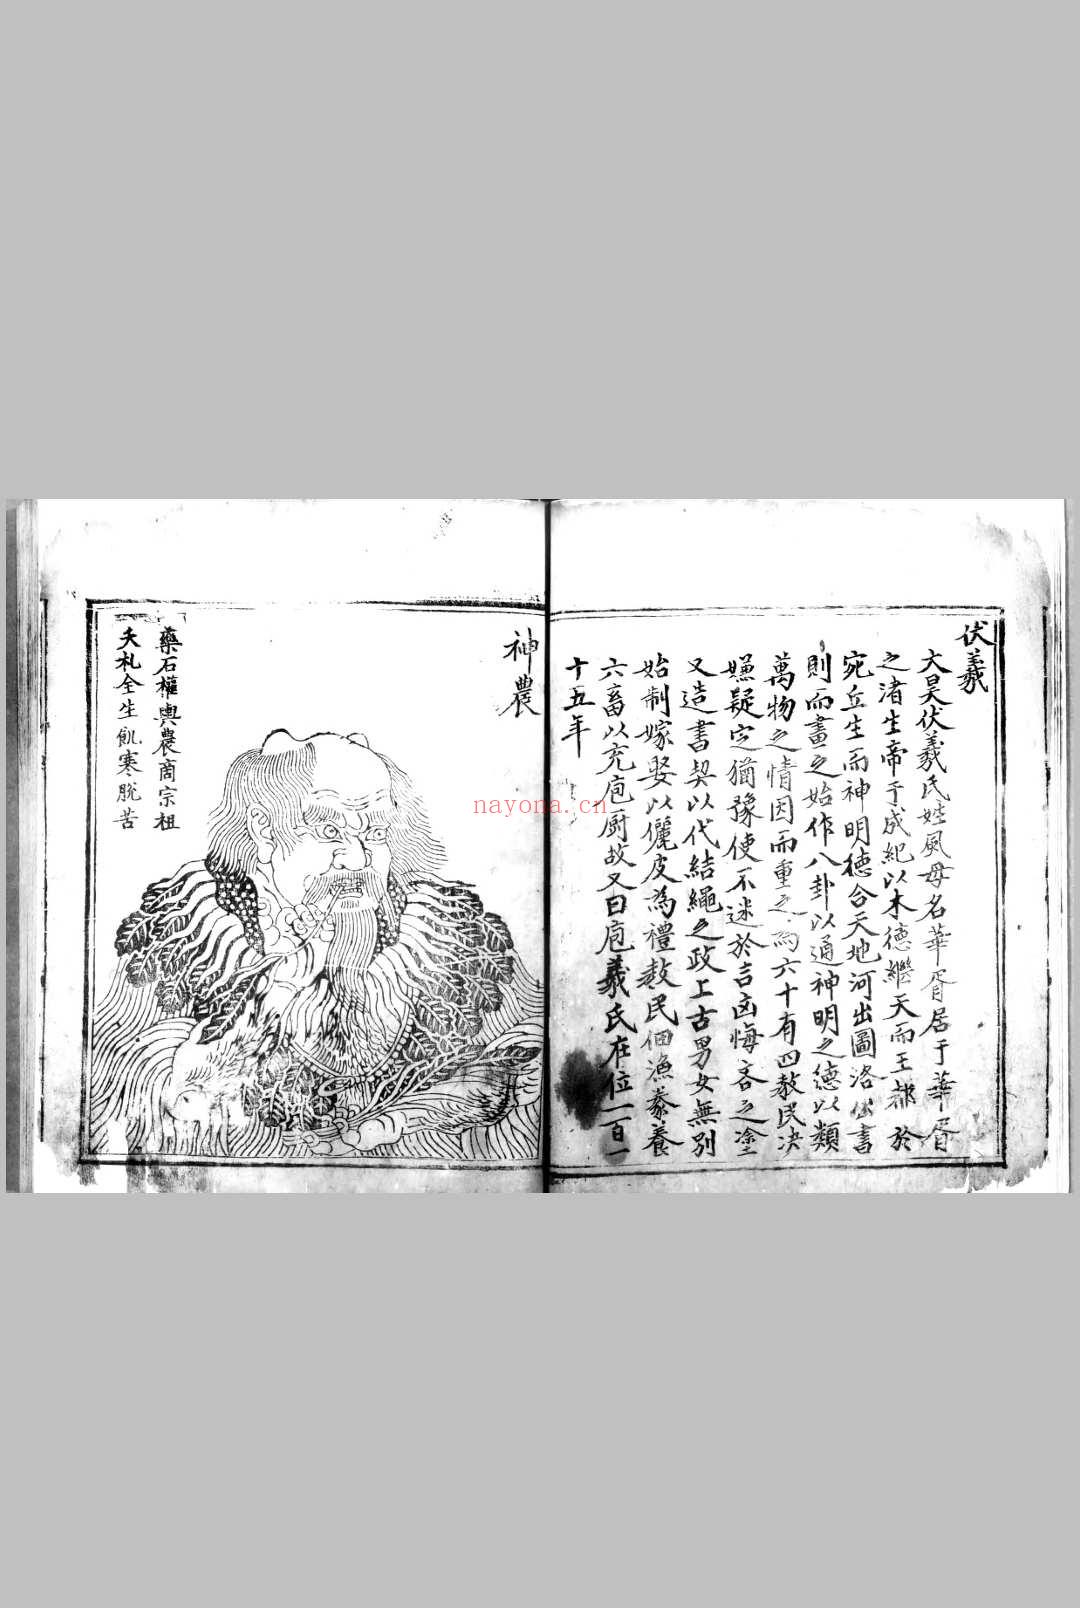 伏羲
太昊伏羲氏姓風母名華胥居于華胥
之渚生帝于成紀以木德繼天而王都於
宛丘生而神明德合天地河出圖洛出書
則而畫之始作八卦以通神明之德以類
萬物之情因而重之為六十有四教民決
嫌疑定猶豫使不迷於吉凶悔吝之塗
又造書契以代結繩之政上古男女無別
始制嫁娶以儷皮為禮教民佃漁豢養
六畜以充庖厨故又曰庖羲氏在位一百一
十五年
神農
藥石權輿農商宗祖
夭札全生飢寒脫苦
nayona.cn